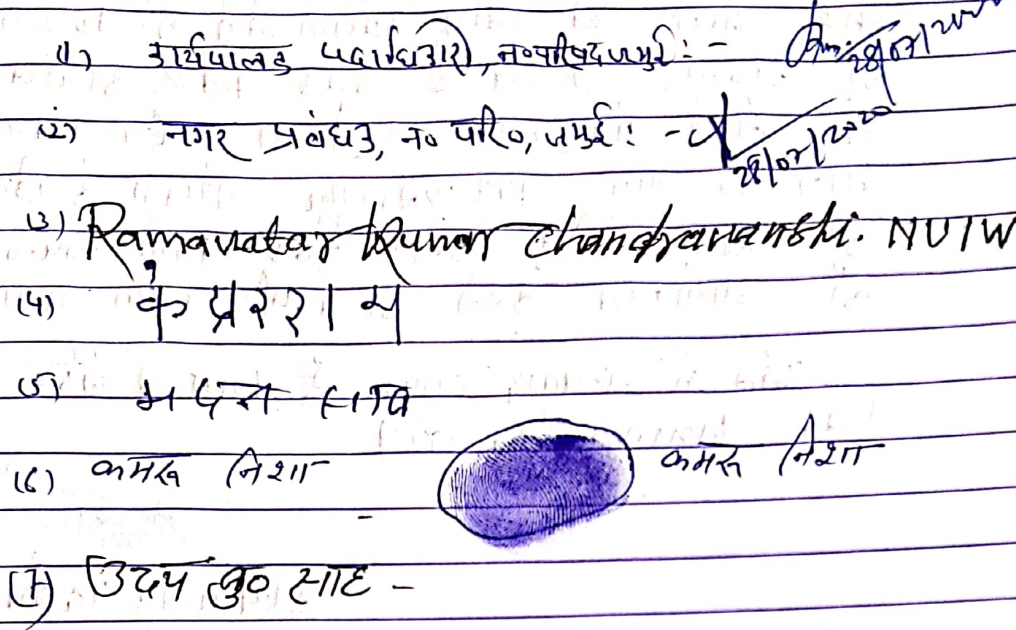 (1) कार्यपालक पदाधिकारी, न०परिषद जमुई : - 28/07/2020
(2) नगर प्रबंधक, न० परि०, जमुई : - 28/07/2020
(3) Ramavatar Kumar Chandravanshi. NULM
(4)
(5) मदन साव
(6) कमरू निशा कमरू निशा
(7) उदय कु० साह -